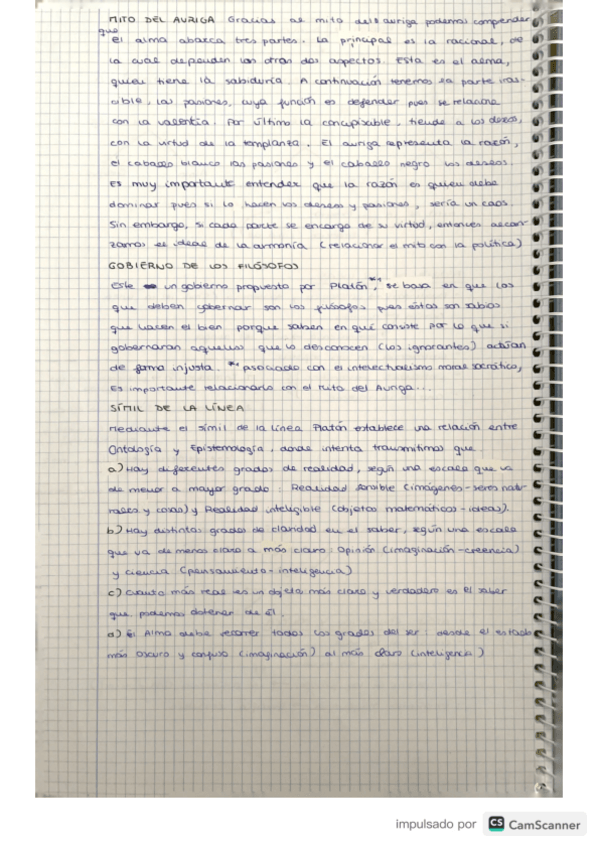 MITO DEL AURIGA Gracias al mito del auriga podemos comprender
que
el alma abarca tres partes. La principal es la racional, de
la cual dependen los otros dos aspectos. Esta es el alma,
quien tiene la sabiduría. A continuación tenemos la parte iras-
cible, las pasiones, cuya función es defender pues se relaciona
con la valentía. Por último la concupiscible, tiende a los deseos,
con la virtud de la templanza. El auriga representa la razón,
el caballo blanco las pasiones y el caballo negro los deseos.
Es muy importante entender que la razón es quien debe
dominar pues si lo hacen los deseos y pasiones, sería un caos.
Sin embargo, si cada parte se encarga de su virtud, entonces alcan-
zamos el ideas de la armonía (relacionar el mito con la política)
GOBIERNO DE LOS FILÓSOFOS
Este un gobierno propuesto por Platón*¹, se basa en que los
que deben gobernar son los filósofos pues éstos son sabios
que hacen el bien porque saben en qué consiste por lo que si
gobernaran aquellos que lo desconocen (los ignorantes) actúan
de forma injusta. *¹ asociado con el intelectualismo moral socrático,
Es importante relacionarlo con el mito del Auriga...
SÍMIL DE LA LÍNEA
Mediante el símil de la línea Platón establece una relación entre
Ontología y Epistemología, donde intenta transmitirnos que
a) Hay diferentes grados de realidad, según una escala que va
de menor a mayor grado: Realidad sensible (imágenes-seres natu-
rales y cosas) y Realidad inteligible (objetos matemáticos-ideas).
b) Hay distintos grados de claridad en el saber, según una escala
que va de menos claro a más claro: Opinión (imaginación-creencia)
y ciencia (pensamiento-inteligencia)
c) Cuanto más real es un objeto, más claro y verdadero es el saber
que podemos obtener de él.
d) El Alma debe recorrer todos los grados del ser: desde el estado
más oscuro y confuso (imaginación) al más claro (inteligencia)
impulsado por CS CamScanner